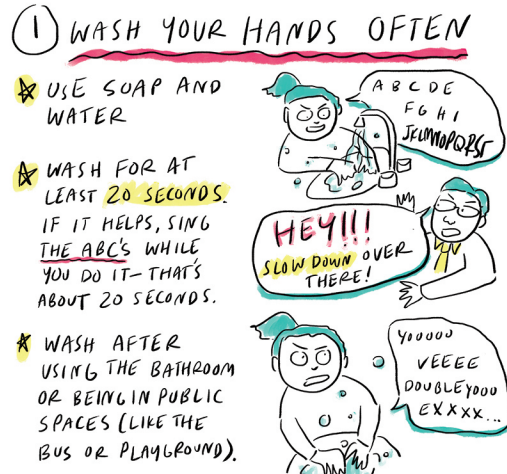 1 WASH YOUR HANDS OFTEN
USE SOAP AND
WATER
WASH FOR AT
LEAST 20 SECONDS.
IF IT HELPS, SING
THE ABC'S WHILE
YOU DO IT - THAT'S
ABOUT 20 SECONDS.
WASH AFTER
USING THE BATHROOM
OR BEING IN PUBLIC
SPACES (LIKE THE
BUS OR PLAYGROUND).
A B C D E
F G H I
JKLMNOPQRST
HEY!!!
SLOW DOWN OVER
THERE!
YOOOOO
VEEEE
DOUBLEYOOO
EXXXX...